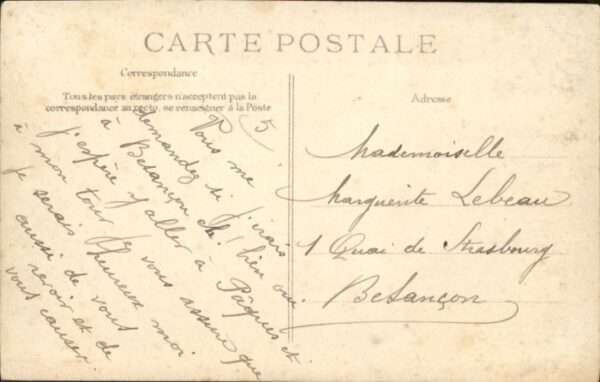 CARTE POSTALE
Correspondance
Tous les pays étrangers n'acceptent pas la
correspondance au recto, se renseigner à la Poste
5
Vous me
demandez si j'irais
à Besançon Eh! bien oui
j'espère y aller à Pâques et
à mon tour je vous assure que
je serais heureux moi
aussi de vous
revoir et de
vous causer.
Adresse
Mademoiselle
Marguerite Lebeau
1 Quai de Strasbourg
Besançon